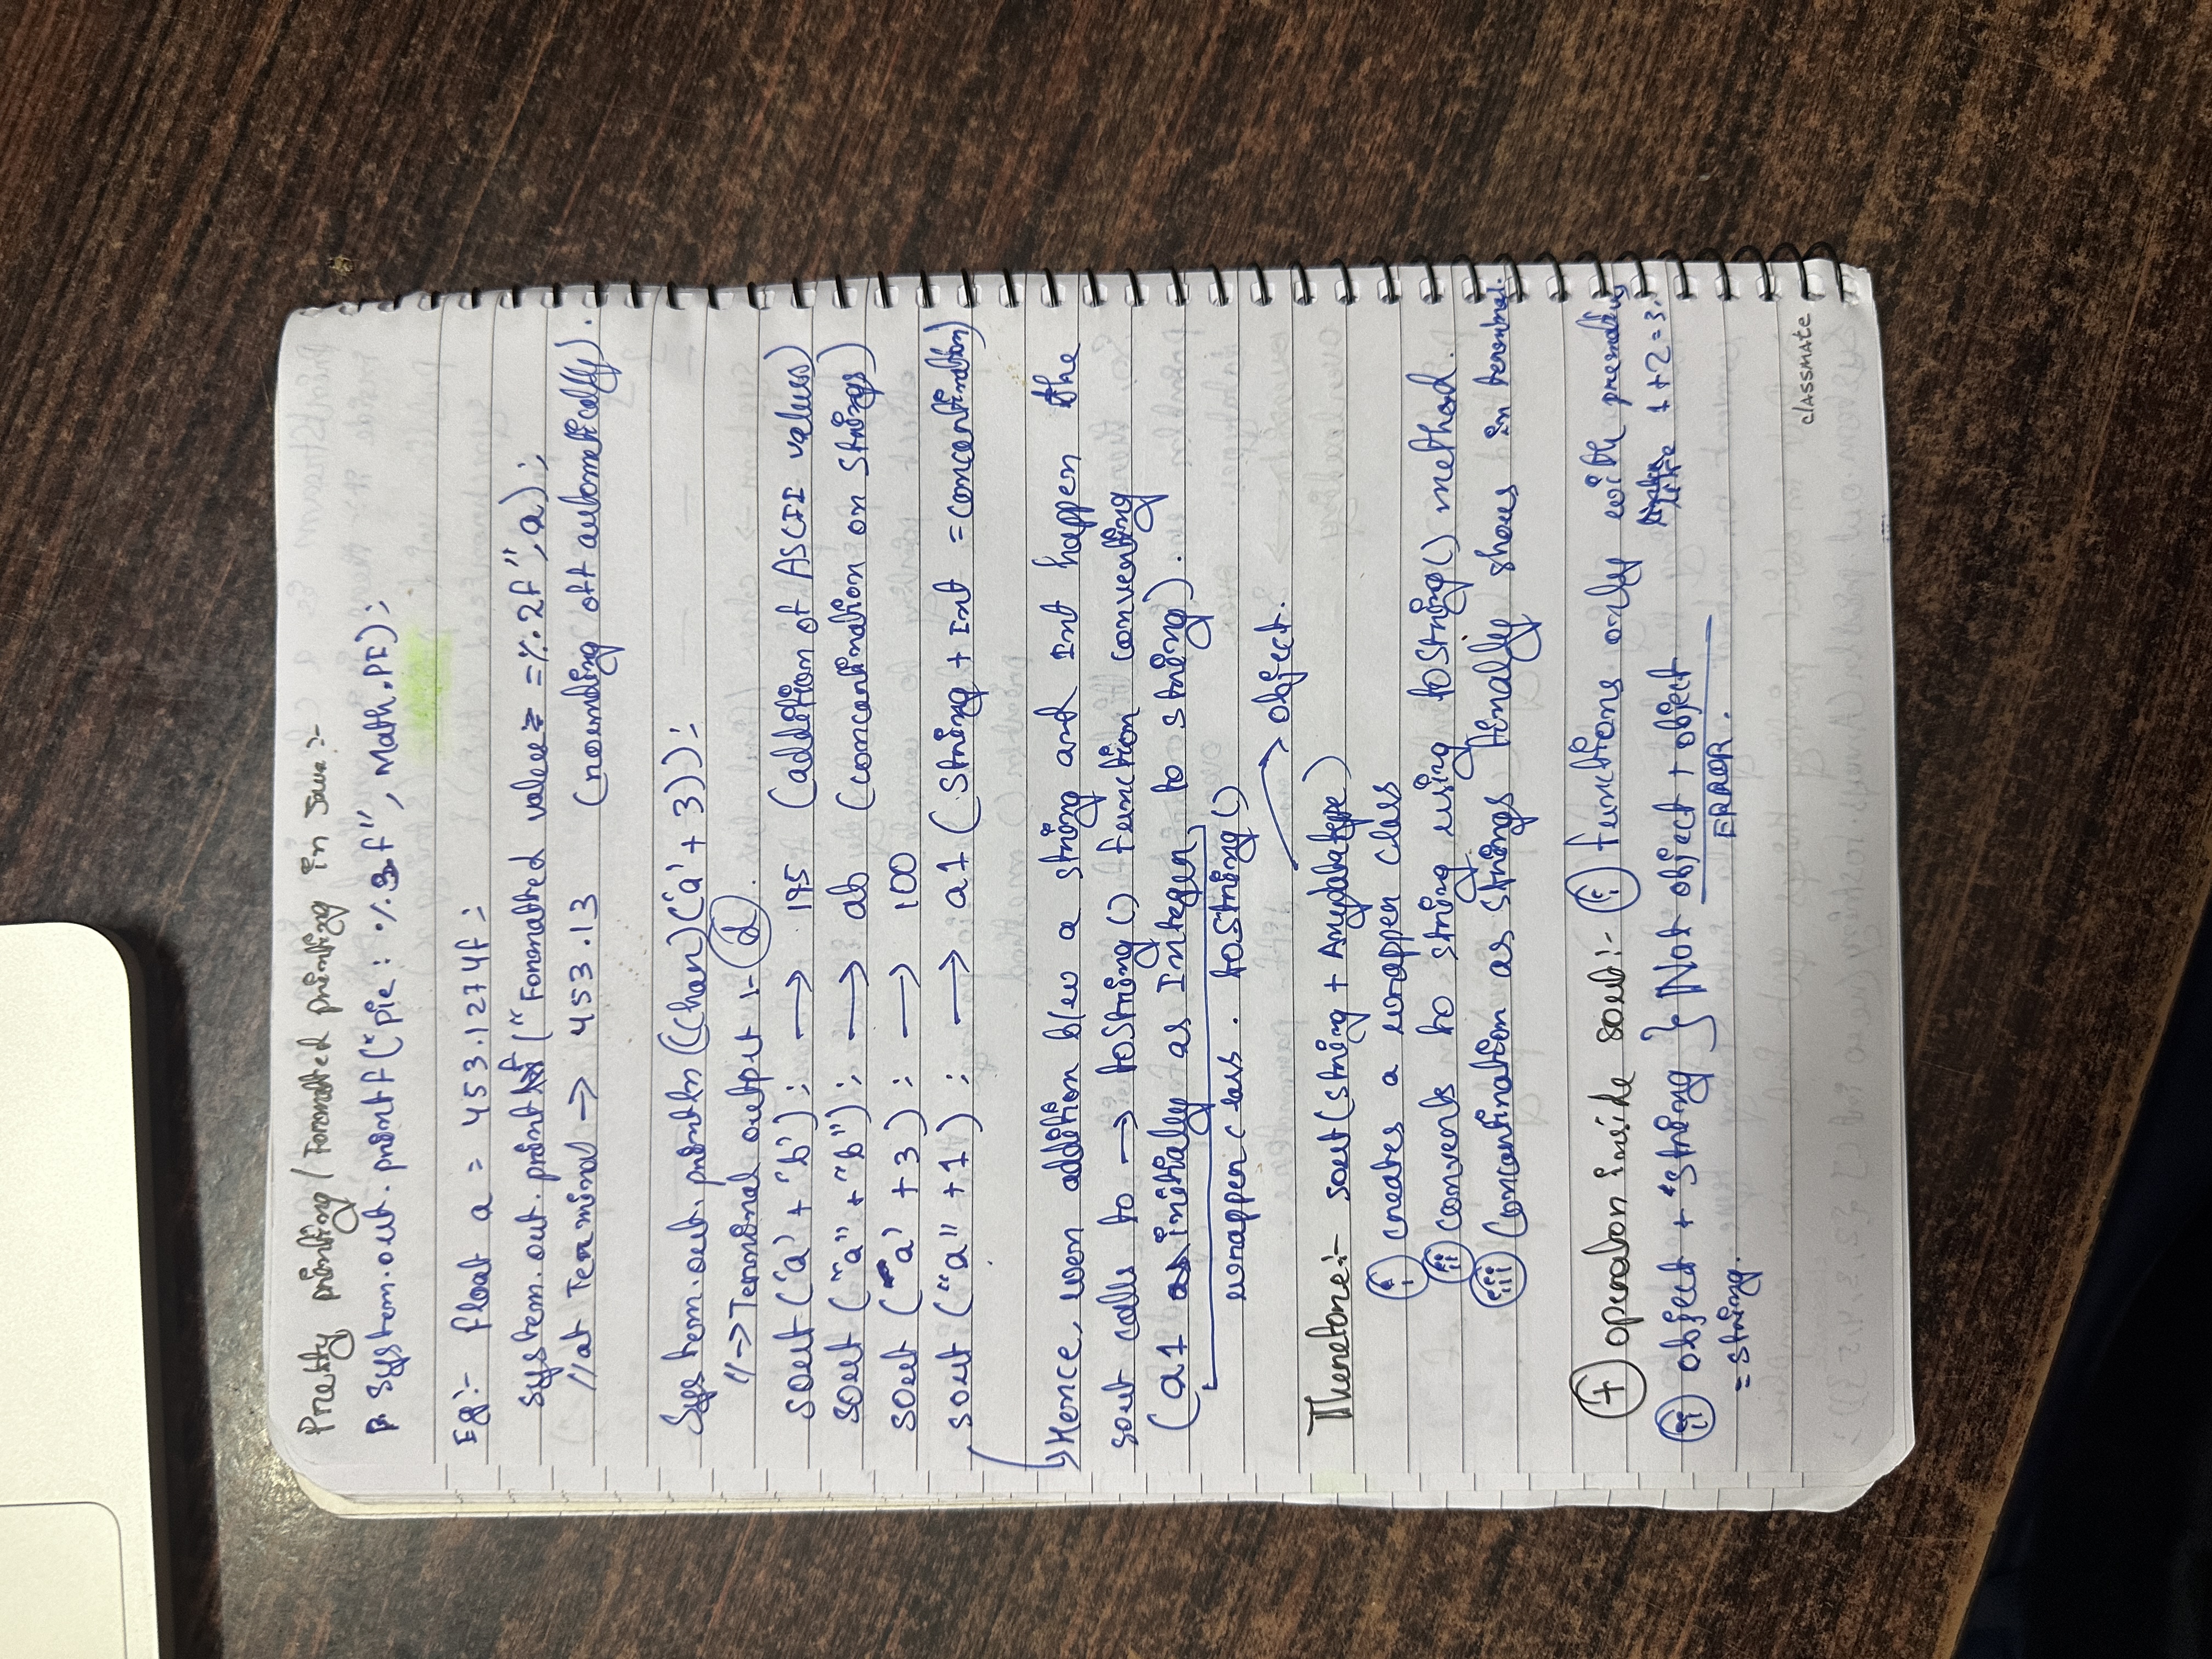 Pretty printing / Formatted printing in Java :-
System.out.printf("pie : %.3f", Math.PI);
Eg:- float a = 453.1274f;
System.out.printf("Formatted value = %.2f", a);
// at Terminal → 453.13 (rounding off autometically).
System.out.println((char)('a' + 3));
// → Terminal output :- d.
sout('a' + 'b'); → 195 (addition of ASCII values)
sout ("a" + "b"); → ab (concantination on strings)
sout ('a' + 3); → 100
sout ("a" + 1); → a1 (string + Int = concantination)
Hence, wen addition b/w a string and Int happen the
sout calls to → toString() function converting
(a1 initially as Integer, to string).
wrapper class. toString()
object.
Therefore:- sout(string + Anydatatype)
i creates a wrapper class
ii converts to string using toString() method.
iii Concantination as strings finally shows in terminal.
+ operator inside sout:- i functions only with
like 1+2=3.
ii object + string } Not object + object
= string. ERROR.
classmate